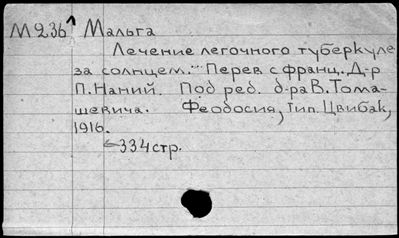 М236 Мальга
Лечение легочного туберкуле-
за солнцем. Перев с франц. Д-р
П. Наний. Под ред. д-ра В. Тома-
шевича. Феодосия, Тип. Цвибак,
1916.
334 стр.